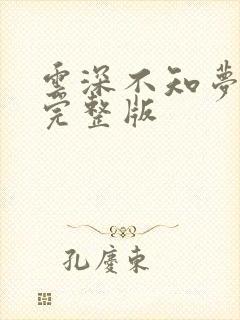 雲深不知夢
完整版
孔慶東